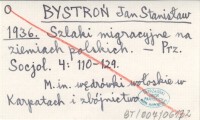 BYSTROŃ Jan Stanisław
1936. Szlaki migracyjne na
ziemiach polskich. — Prz.
Socjol. 4: 110-129.
M.in. wędrówki wołoskie w
Karpatach i zbójnictwo.